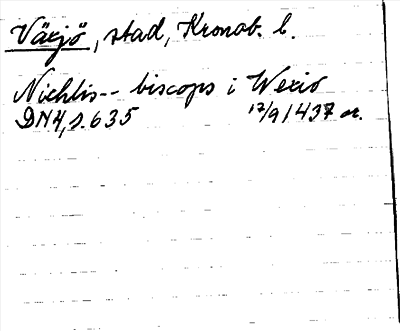 Växjö, stad, Kronob. l.
Nichlis-- biscops i Wexio
DN4, s. 635 17/9 1437 or.